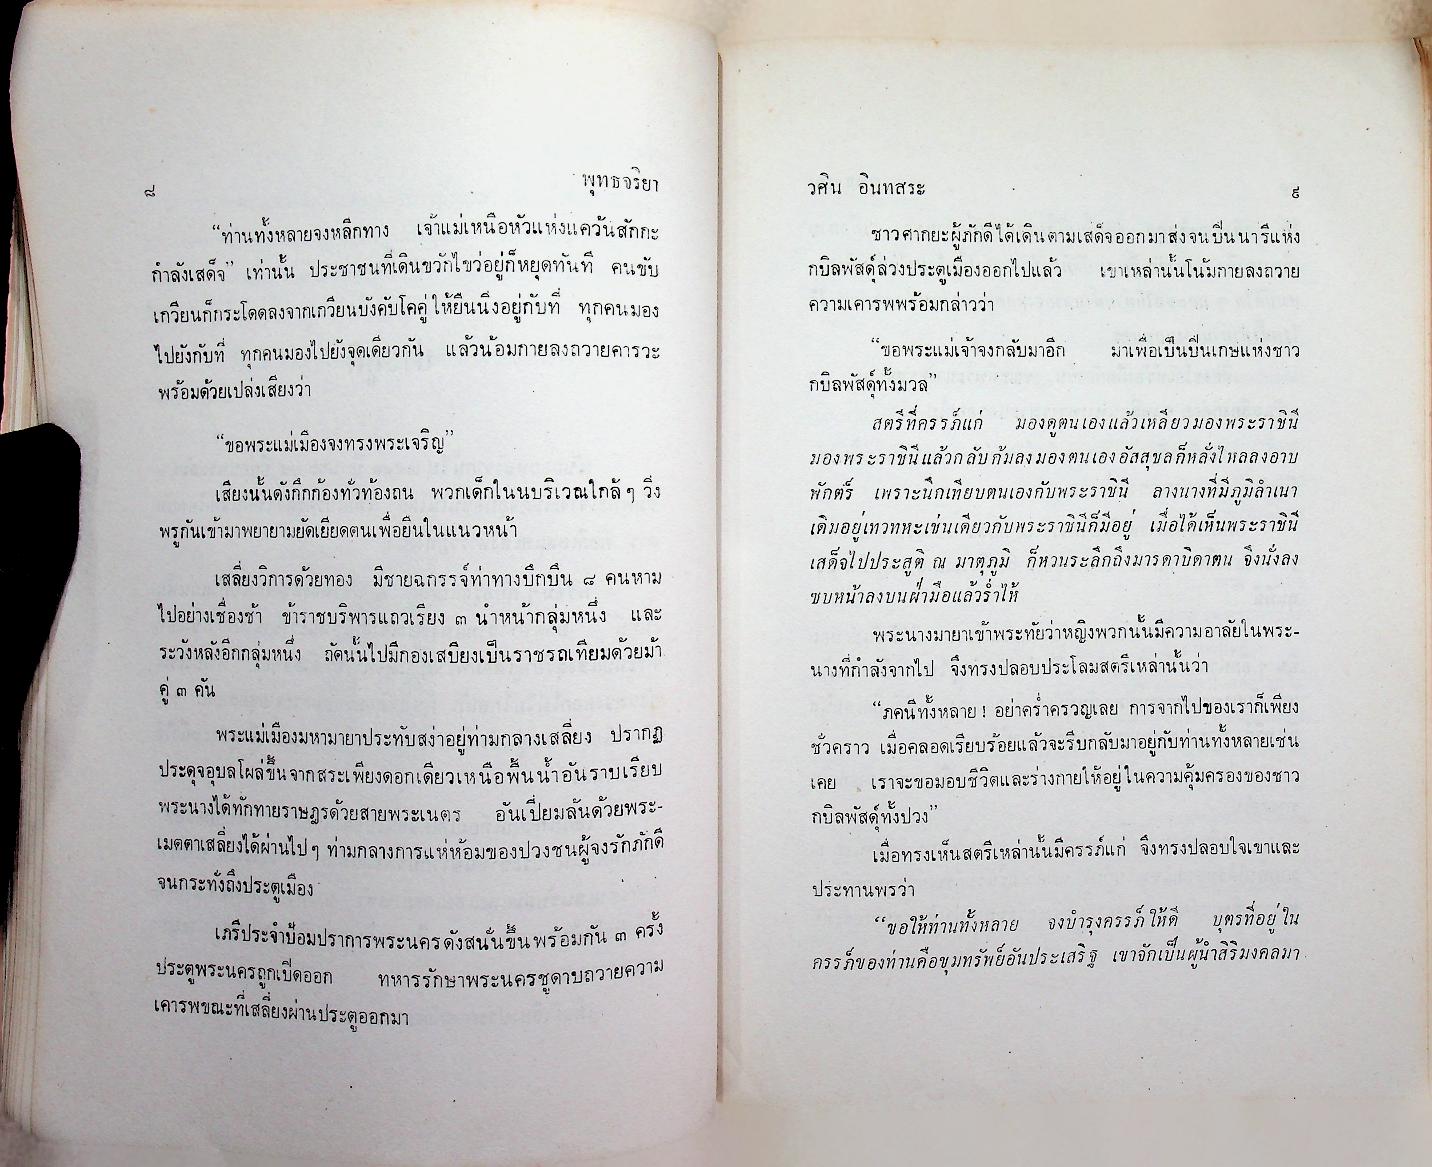 ๘
พุทธจริยา
“ท่านทั้งหลายจงหลีกทาง เจ้าแม่เหนือหัวแห่งแคว้นสักกะ
กำลังเสด็จ” เท่านั้น ประชาชนที่เดินขวักไขว่อยู่ก็หยุดทันที คนขับ
เกวียนก็กระโดดลงจากเกวียนบังคับโคคู่ให้ยืนนิ่งอยู่กับที่ ทุกคนมอง
ไปยังกับที่ ทุกคนมองไปยังจุดเดียวกัน แล้วน้อมกายลงถวายคารวะ
พร้อมด้วยเปล่งเสียงว่า
“ขอพระแม่เมืองจงทรงพระเจริญ”
เสียงนั้นดังกึกก้องทั่วท้องถน พวกเด็กในนบริเวณใกล้ๆ วิ่ง
พรูกันเข้ามาพยายามยัดเยียดตนเพื่อยืนในแนวหน้า
เสลี่ยงวิการด้วยทอง มีชายฉกรรจ์ท่าทางบึกบึน ๘ คนหาม
ไปอย่างเชื่องช้า ข้าราชบริพารแถวเรียง ๓ นำหน้ากลุ่มหนึ่ง และ
ระวังหลังอีกกลุ่มหนึ่ง ถัดนั้นไปมีกองเสบียงเป็นราชรถเทียมด้วยม้า
คู่ ๓ คัน
พระแม่เมืองมหามายาประทับสง่าอยู่ท่ามกลางเสลี่ยง ปรากฏ
ประดุจอุบลโผล่ขึ้นจากสระเพียงดอกเดียวเหนือพื้นน้ำอันราบเรียบ
พระนางได้ทักทายราษฎรด้วยสายพระเนตร อันเปี่ยมล้นด้วยพระ-
เมตตาเสลี่ยงได้ผ่านไปๆ ท่ามกลางการแห่ห้อมของปวงชนผู้จงรักภักดี
จนกระทั่งถึงประตูเมือง
เภรีประจำป้อมปราการพระนครดังสนั่นขึ้นพร้อมกัน ๓ ครั้ง
ประตูพระนครถูกเปิดออก ทหารรักษาพระนครชูดาบถวายความ
เคารพขณะที่เสลี่ยงผ่านประตูออกมา
วศิน อินทสระ
๙
ชาวศากยะผู้ภักดีได้เดินตามเสด็จออกมาส่งจนปิ่นนารีแห่ง
กบิลพัสดุ์ล่วงประตูเมืองออกไปแล้ว เขาเหล่านั้นโน้มกายลงถวาย
ความเคารพพร้อมกล่าวว่า
“ขอพระแม่เจ้าจงกลับมาอีก มาเพื่อเป็นปิ่นเกษแห่งชาว
กบิลพัสดุ์ทั้งมวล”
สตรีที่ครรภ์แก่ มองดูตนเองแล้วเหลียวมองพระราชินี
มองพระราชินีแล้วกลับก้มลงมองตนเองอัสสุชลก็หลั่งไหลลงอาบ
พักตร์ เพราะนึกเทียบตนเองกับพระราชินี ลางนางที่มีภูมิลำเนา
เดิมอยู่เทวทหะเช่นเดียวกับพระราชินีก็มีอยู่ เมื่อได้เห็นพระราชินี
เสด็จไปประสูติ ณ มาตุภูมิ ก็หวนระลึกถึงมารดาบิดาตน จึงนั่งลง
ซบหน้าลงบนฝ่ามือแล้วร่ำไห้
พระนางมายาเข้าพระทัยว่าหญิงพวกนั้นมีความอาลัยในพระ-
นางที่กำลังจากไป จึงทรงปลอบประโลมสตรีเหล่านั้นว่า
“ภคนีทั้งหลาย ! อย่าคร่ำครวญเลย การจากไปของเราก็เพียง
ชั่วคราว เมื่อคลอดเรียบร้อยแล้วจะรีบกลับมาอยู่กับท่านทั้งหลายเช่น
เคย เราจะขอมอบชีวิตและร่างกายให้อยู่ในความคุ้มครองของชาว
กบิลพัสดุ์ทั้งปวง”
เมื่อทรงเห็นสตรีเหล่านั้นมีครรภ์แก่ จึงทรงปลอบใจเขาและ
ประทานพรว่า
“ขอให้ท่านทั้งหลาย จงบำรุงครรภ์ให้ดี บุตรที่อยู่ใน
ครรภ์ของท่านคือขุมทรัพย์อันประเสริฐ เขาจักเป็นผู้นำสิริมงคลมา